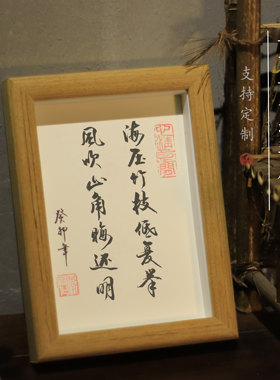 海压竹枝低复举
风吹山角晦还明
癸卯年
支持定制